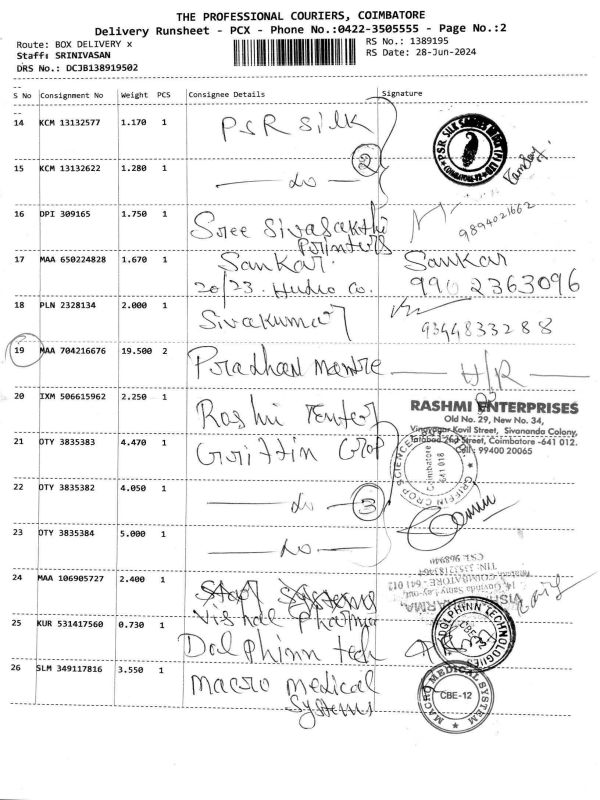 THE PROFESSIONAL COURIERS, COIMBATORE
Delivery Runsheet - PCX - Phone No.:0422-3505555 - Page No.:2
Route: BOX DELIVERY x RS No.: 1389195
Staff: SRINIVASAN RS Date: 28-Jun-2024
DRS No.: DCJB138919502
S No Consignment No Weight PCS Consignee Details Signature
14 KCM 13132577 1.170 1 PSR Silk
15 KCM 13132622 1.280 1 — do — 2
16 DPI 309165 1.750 1 Sree Sivasakthi
Printers 9894021662
17 MAA 650224828 1.670 1 Sankar Sankar
20/23. Hudco Co. 990 2363096
18 PLN 2328134 2.000 1 Sivakumar 9344833288
19 MAA 704216676 19.500 2 Pradhan mantre — U/R —
20 IXM 506615962 2.250 1 Rashi Enter
RASHMI ENTERPRISES
Old No. 29, New No. 34,
Vinayagar Kovil Street, Sivananda Colony,
Tatabad 2nd Street, Coimbatore -641 012.
Cell : 99400 20065
21 DTY 3835383 4.470 1 Griffin Crop
GRIFFIN CROP SCIENCE
Coimbatore
641 018
22 DTY 3835382 4.050 1 — do — 3
23 DTY 3835384 5.000 1 — do —
24 MAA 106905727 2.400 1 Star Systems
Vishal Pharma
25 KUR 531417560 0.730 1 Dolphinn tech
DOLPHINN TECHNOLOGIES
26 SLM 349117816 3.550 1 Macro Medical
Systems
MACRO MEDICAL SYSTEM
CBE-12